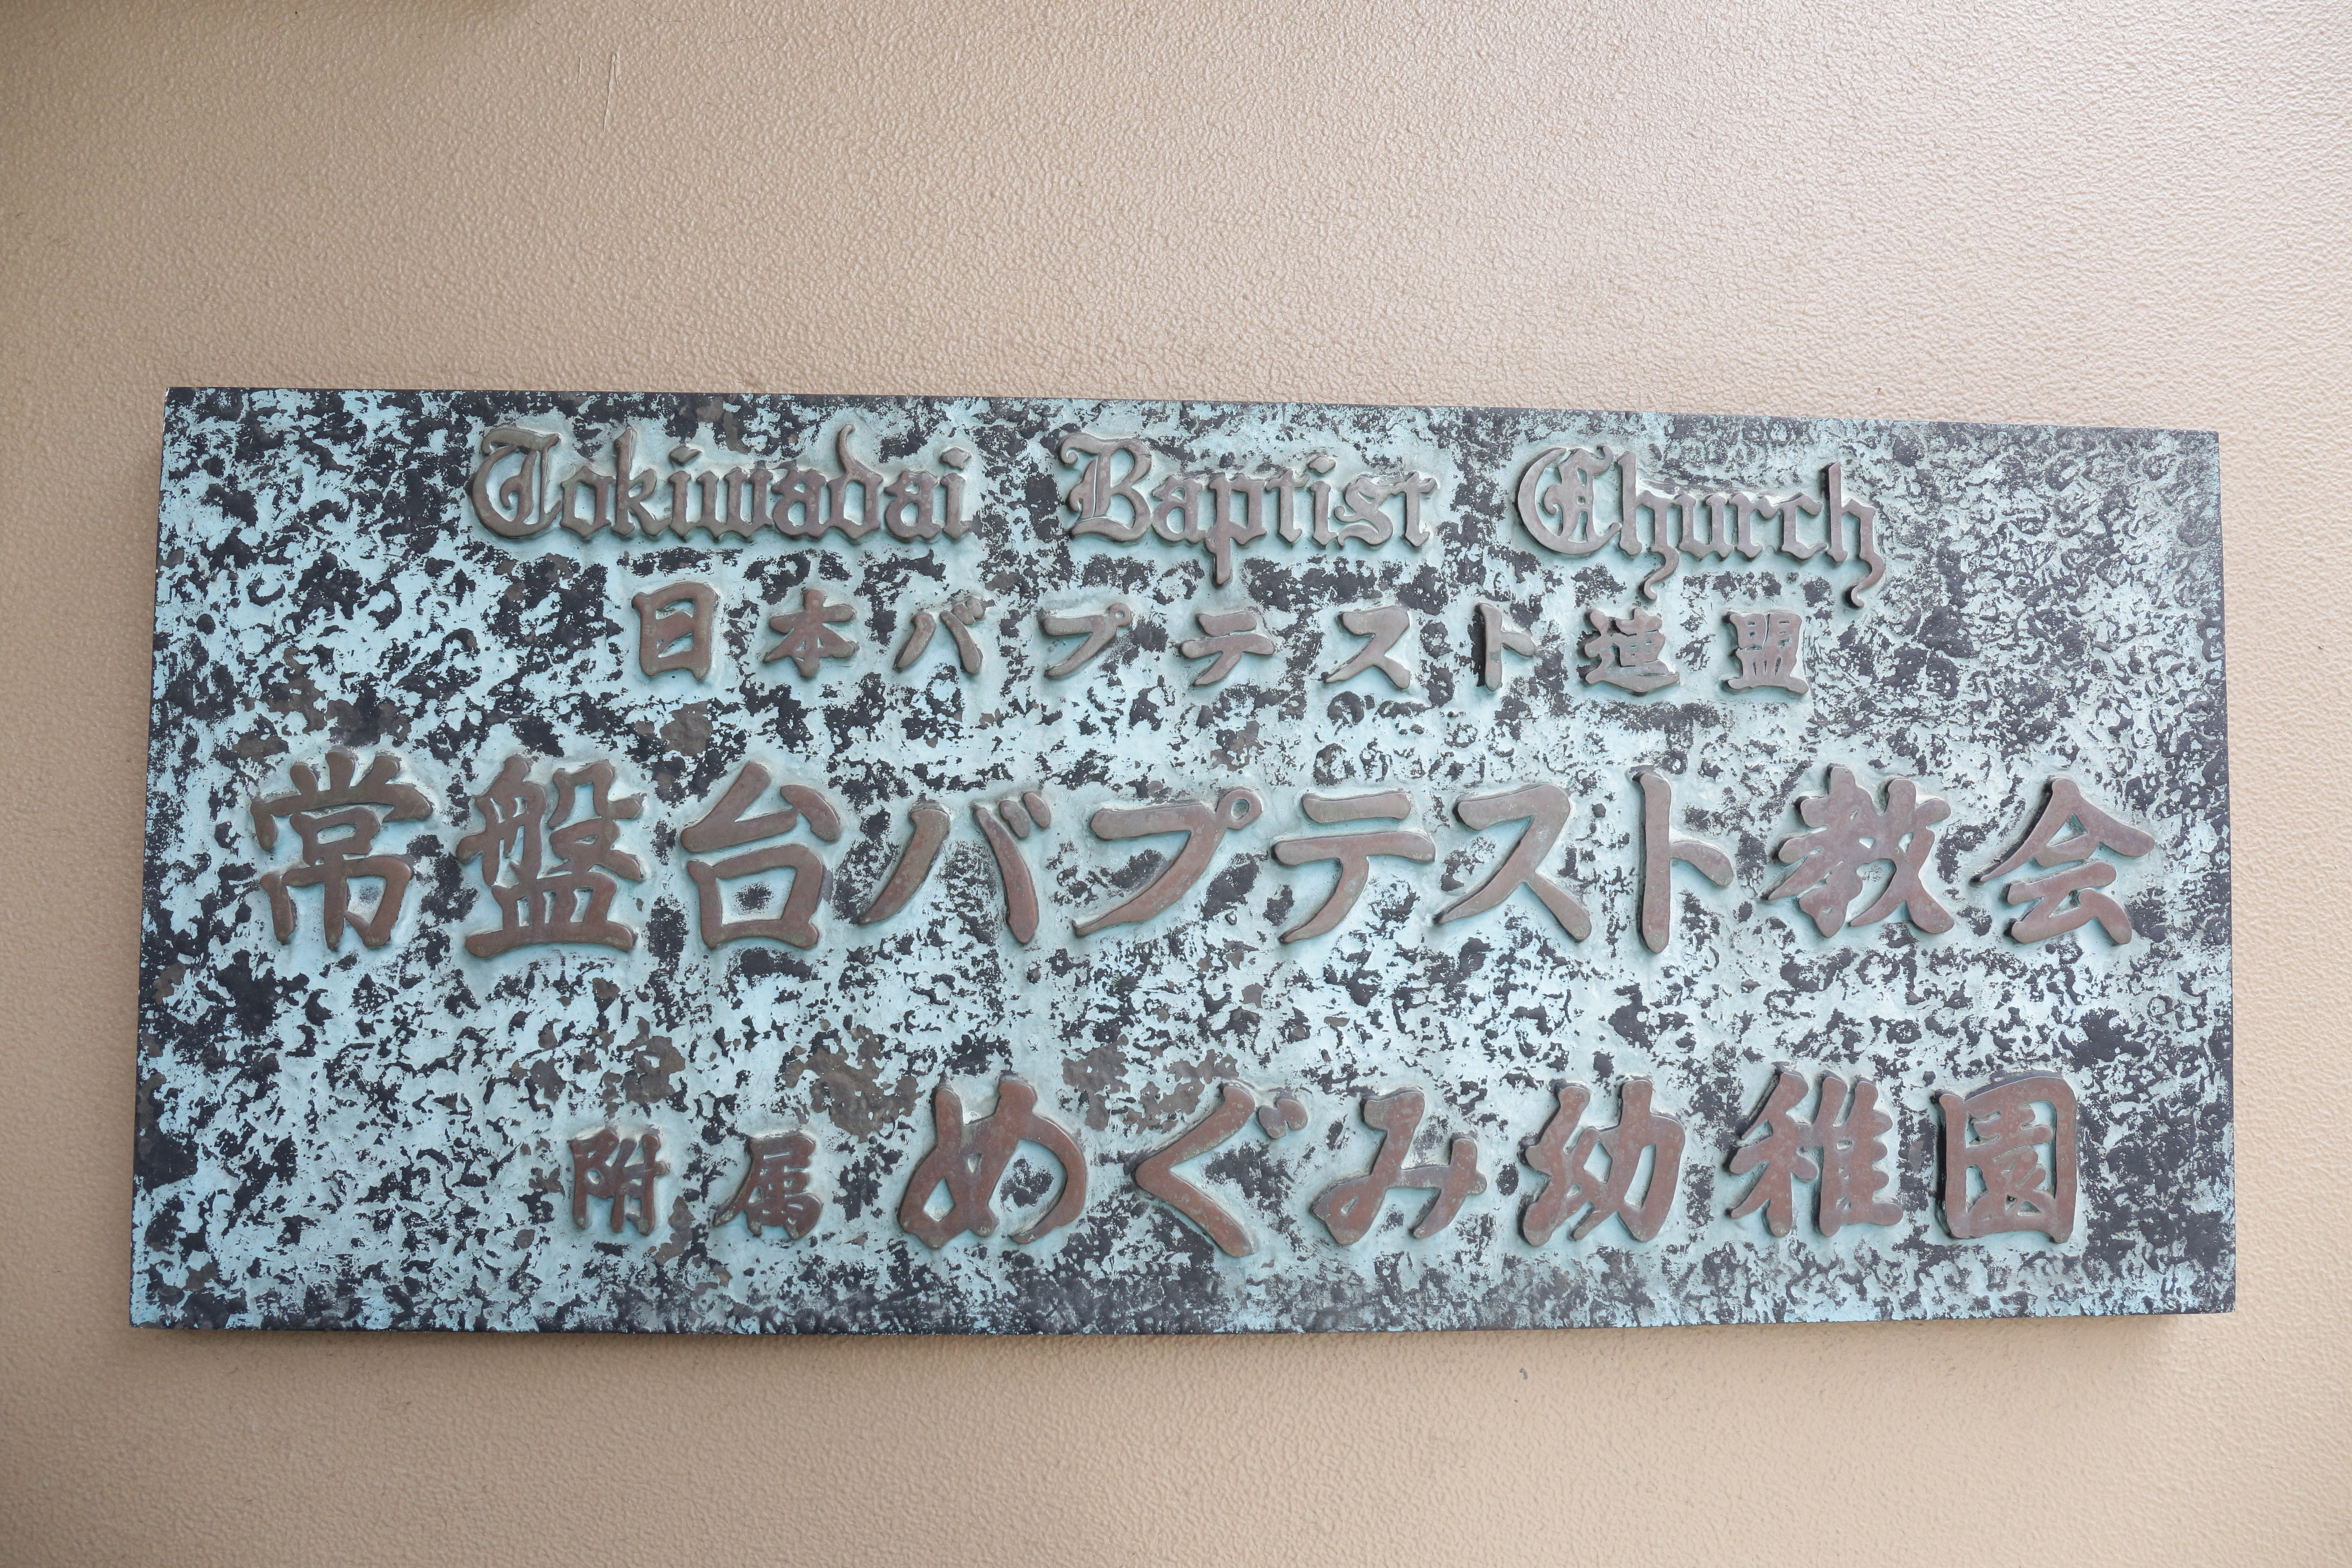 Tokiwadai Baptist Church
日本バプテスト連盟
常盤台バプテスト教会
附属めぐみ幼稚園